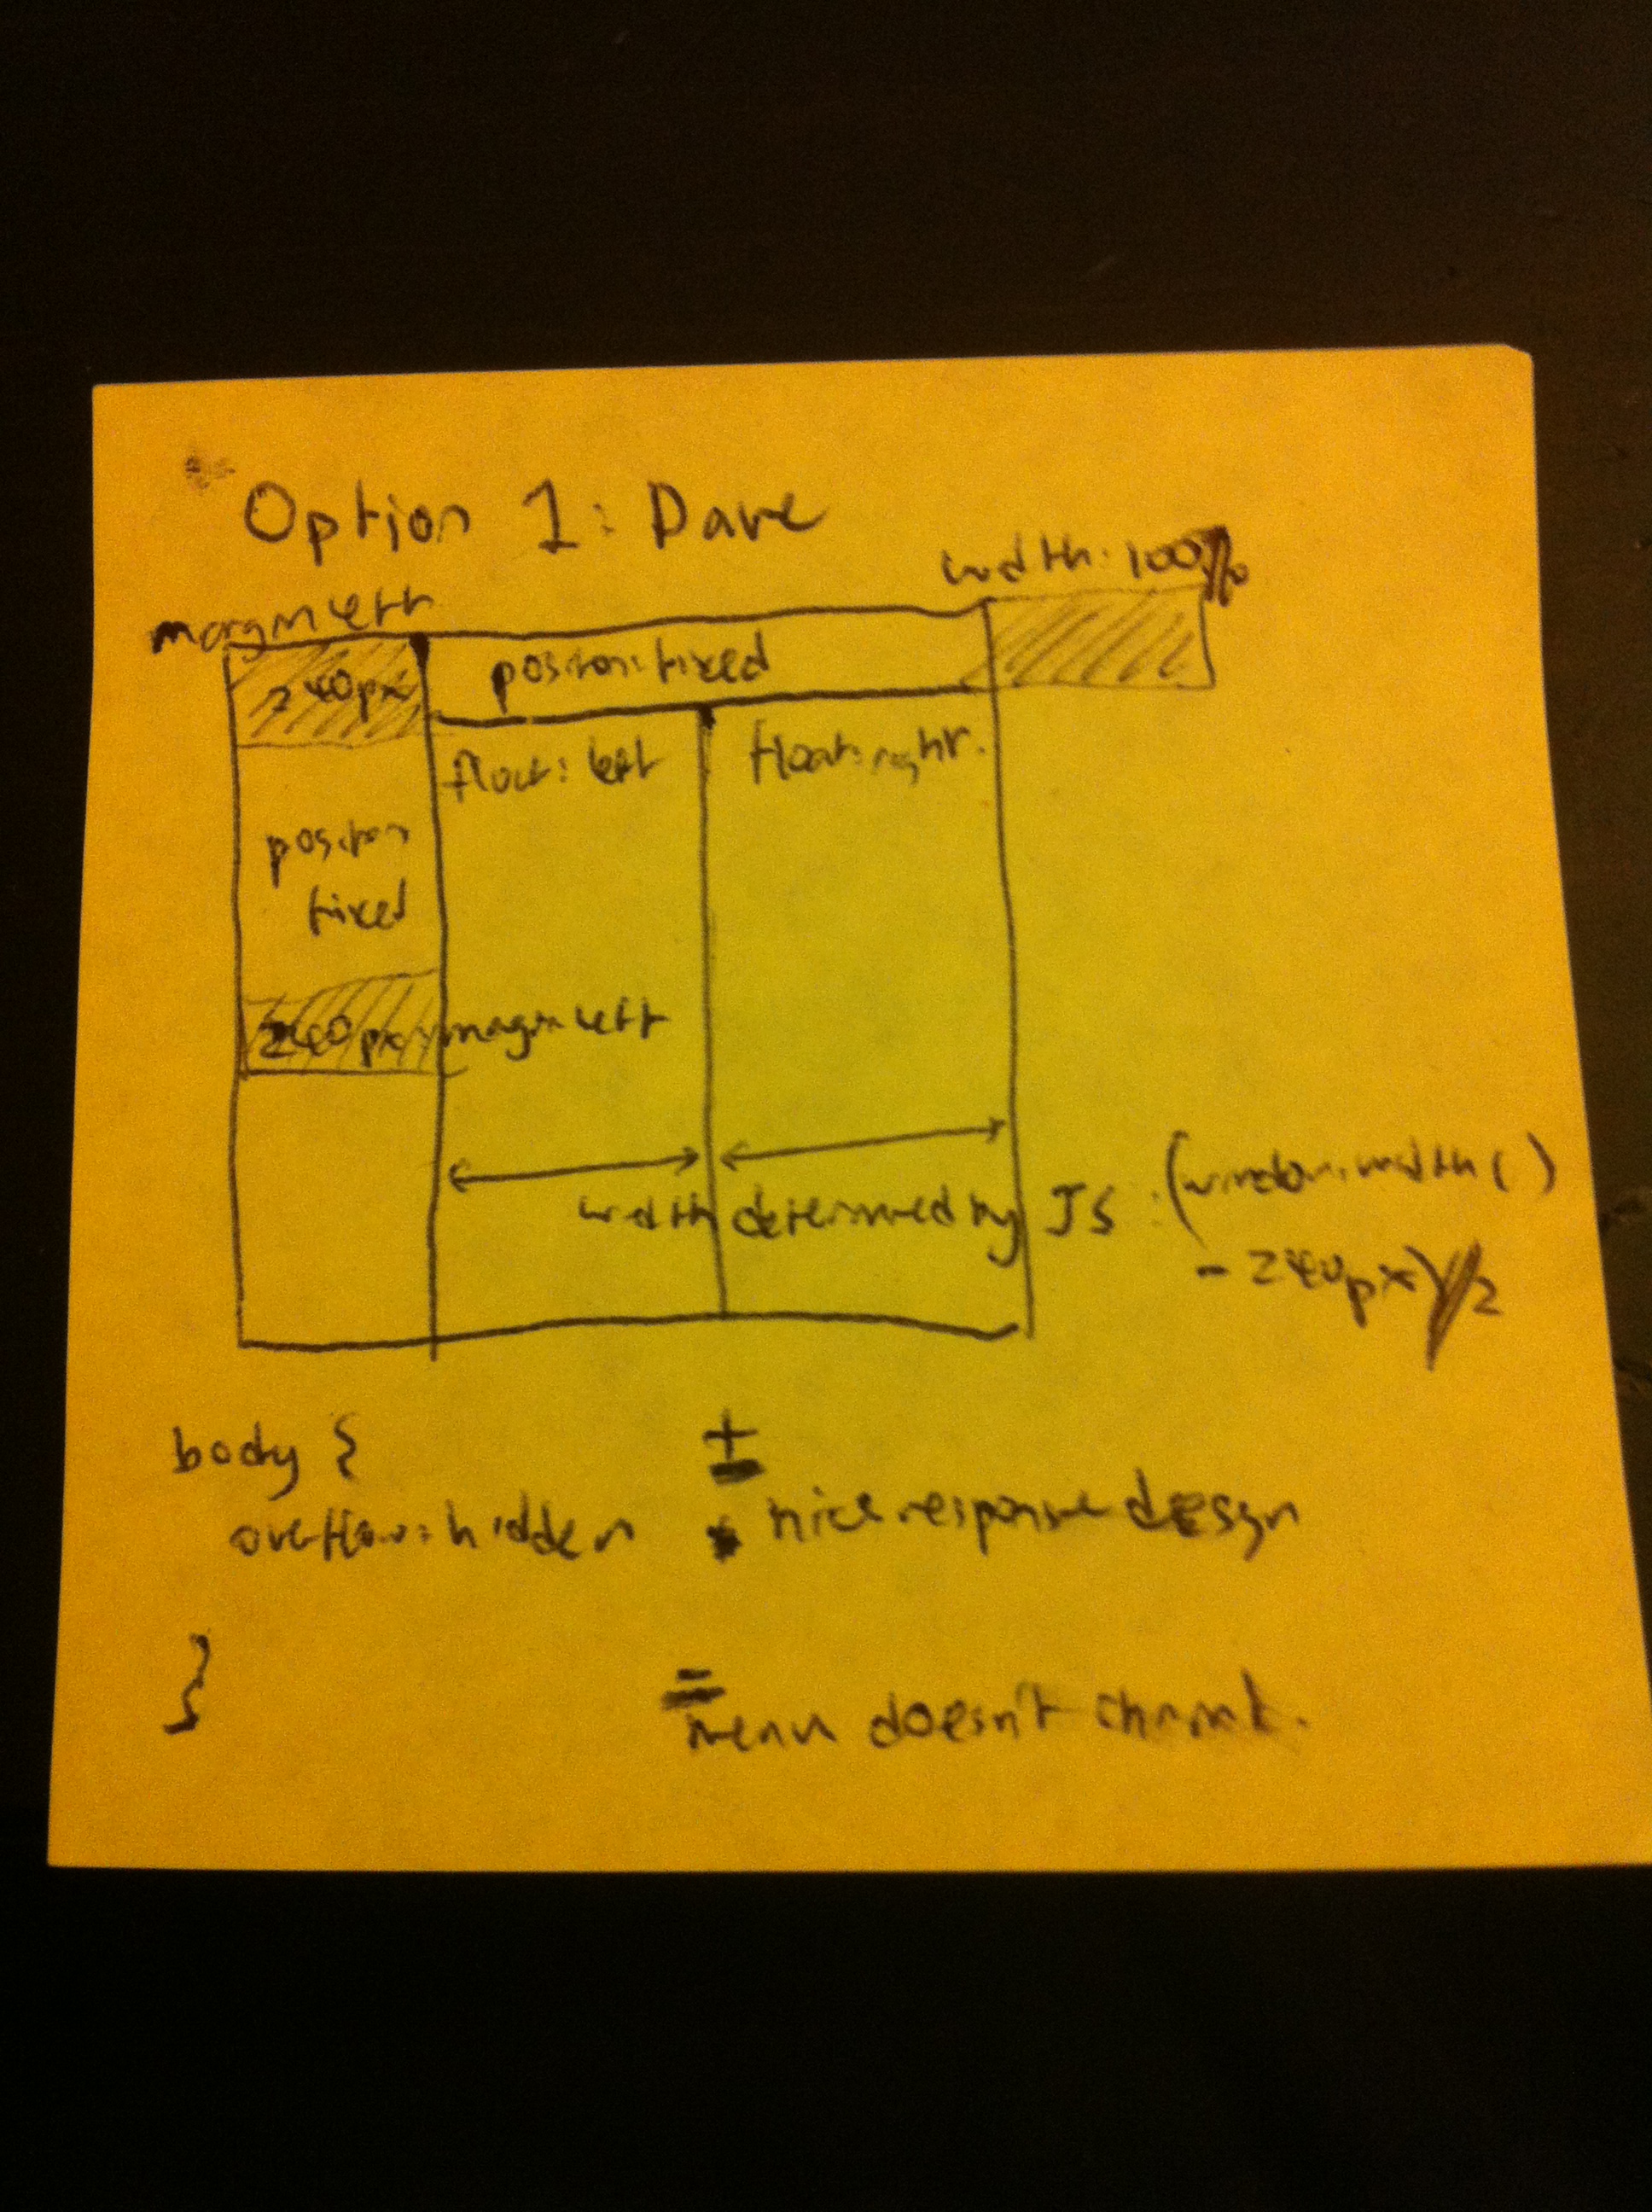 Option 1: Dave
width: 100%
margin left
240px
position: fixed
float: left
float: right.
position
fixed
240px margin left
width determined by JS: (window.width()
- 240px)/2
body {
overflow: hidden
}
+
• nice response design
-
menu doesn't shrink.